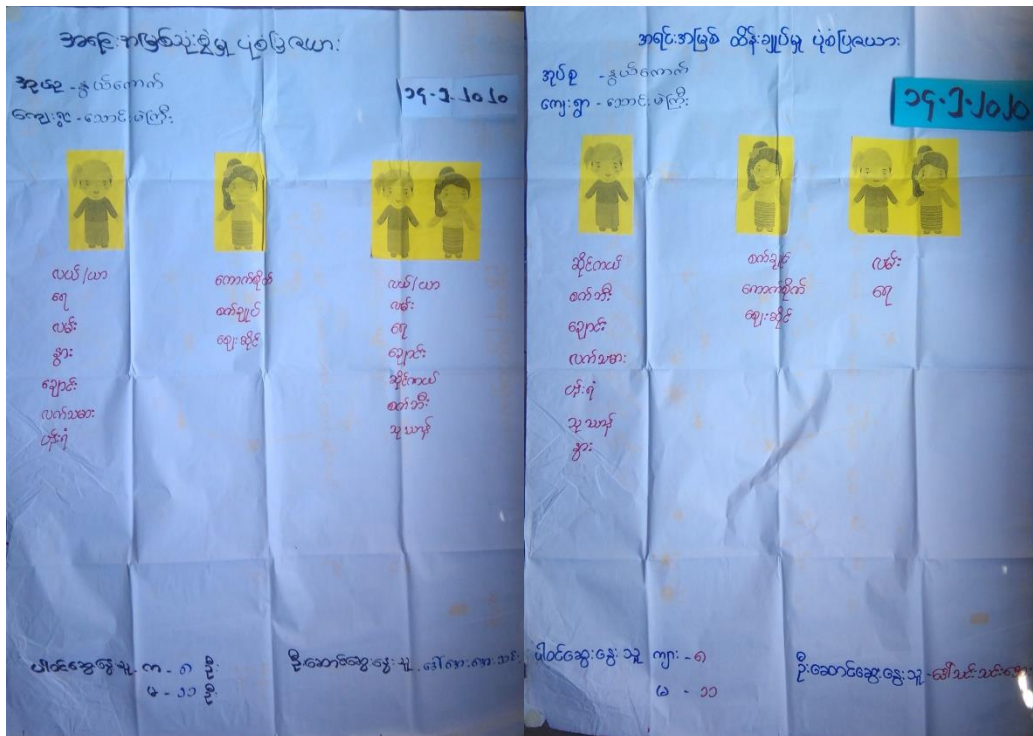 အရင်းအမြစ်သုံးစွဲမှု ပုံစံပြဇယား
အုပ်စု - နွယ်ကောက်
၁၄-၃-၂၀၂၀
ကျေးရွာ - သောင်းဖဲကြီး
လယ်/ယာ
ရေ
လမ်း
နွား
ချောင်း
လက်သမား
ပန်းရံ
ကောက်စိုက်
စက်ချုပ်
ဈေးဆိုင်
လယ်/ယာ
လမ်း
ရေ
ချောင်း
ဆိုင်ကယ်
စက်ဘီး
သုဿာန်
ပါဝင်ဆွေးနွေးသူ - က - ၈ ဦး
မ - ၁၁ ဦး
ဦးဆောင်ဆွေးနွေးသူ -
အရင်းအမြစ် ထိန်းချုပ်မှု ပုံစံပြဇယား
အုပ်စု - နွယ်ကောက်
ကျေးရွာ - သောင်းဖဲကြီး
၁၄-၃-၂၀၂၀
ဆိုင်ကယ်
စက်ဘီး
ချောင်း
လက်သမား
ပန်းရံ
သုဿာန်
နွား
စက်ချုပ်
ကောက်စိုက်
ဈေးဆိုင်
လမ်း
ရေ
ပါဝင်ဆွေးနွေးသူ ကျား - ၈
မ - ၁၁
ဦးဆောင်ဆွေးနွေးသူ - ဒေါ်သင်းသင်းအေး